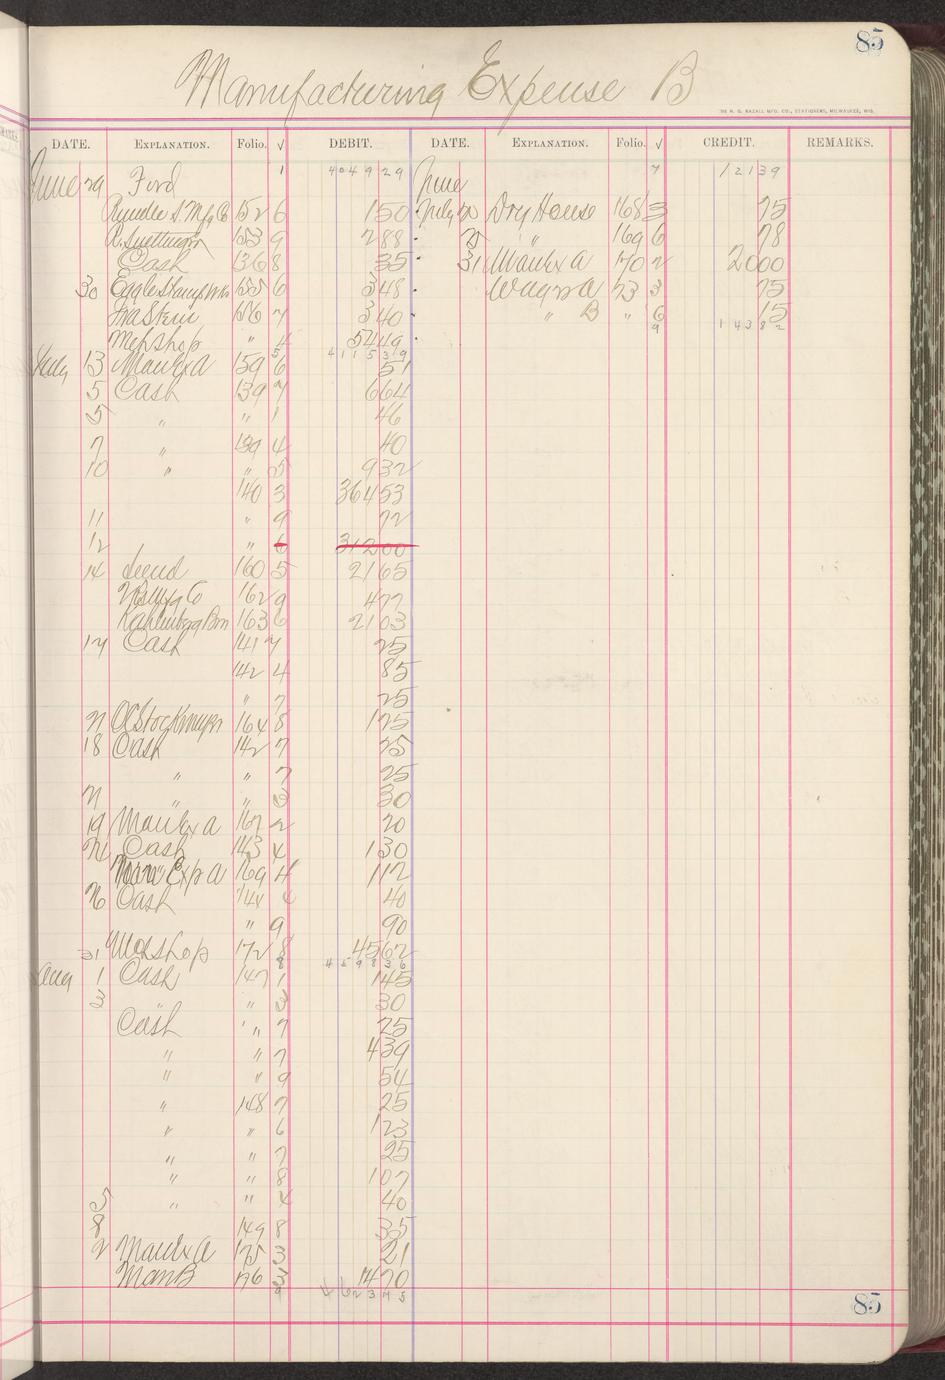 85
Manufacturing Expense B
THE H. G. RAZALL MFG. CO., STATIONERS, MILWAUKEE, WIS.
DATE. EXPLANATION. Folio. √ DEBIT. DATE. EXPLANATION. Folio. √ CREDIT. REMARKS.
June 29 Ford 1 4049 29 June 7 121 39
Rundle S. Mfg Co 152 6 1 50 July 20 Dry House 168 3 75
153 9 2 88 25 " 169 6 78
Cash 136 8 35 31 Man Ex A 170 2 20 00
30 Eagle Stamp Wks 155 6 3 48 Wagon A 173 3 75
Ira Stein 156 7 3 40 " B " 6 15
Meh Shop " 4 54 49 9 143 82
5 4115 39
July 13 Man Ex A 159 6 51
5 Cash 139 7 6 64
5 " " 1 46
7 " 139 4 40
10 " " 5 9 32
140 3 364 53
11 " 9 72
12 " 6 312 00
14 Lund 160 5 21 65
162 9 4 77
Kahlenberg Bros 163 6 21 03
17 Cash 141 7 25
142 4 85
" 7 25
21 O C Stockmeyer 164 8 1 75
18 Cash 142 7 25
" " 7 25
21 " " 6 30
19 Man Ex A 167 2 20
24 Cash 143 4 1 30
Man Exp A 169 4 1 12
26 Cash 144 4 40
" 9 90
31 Meh Shop 172 8 45 62
8 4598 36
Aug 1 Cash 147 1 1 45
3 " " 3 30
Cash " 7 25
" " 7 4 39
" " 9 54
" 148 7 25
" " 6 1 23
" " 7 25
" " 8 1 07
5 " " 4 40
8 149 8 35
2 Man Ex A 175 3 21
Man B 176 3 14 70
9 4623 75
85